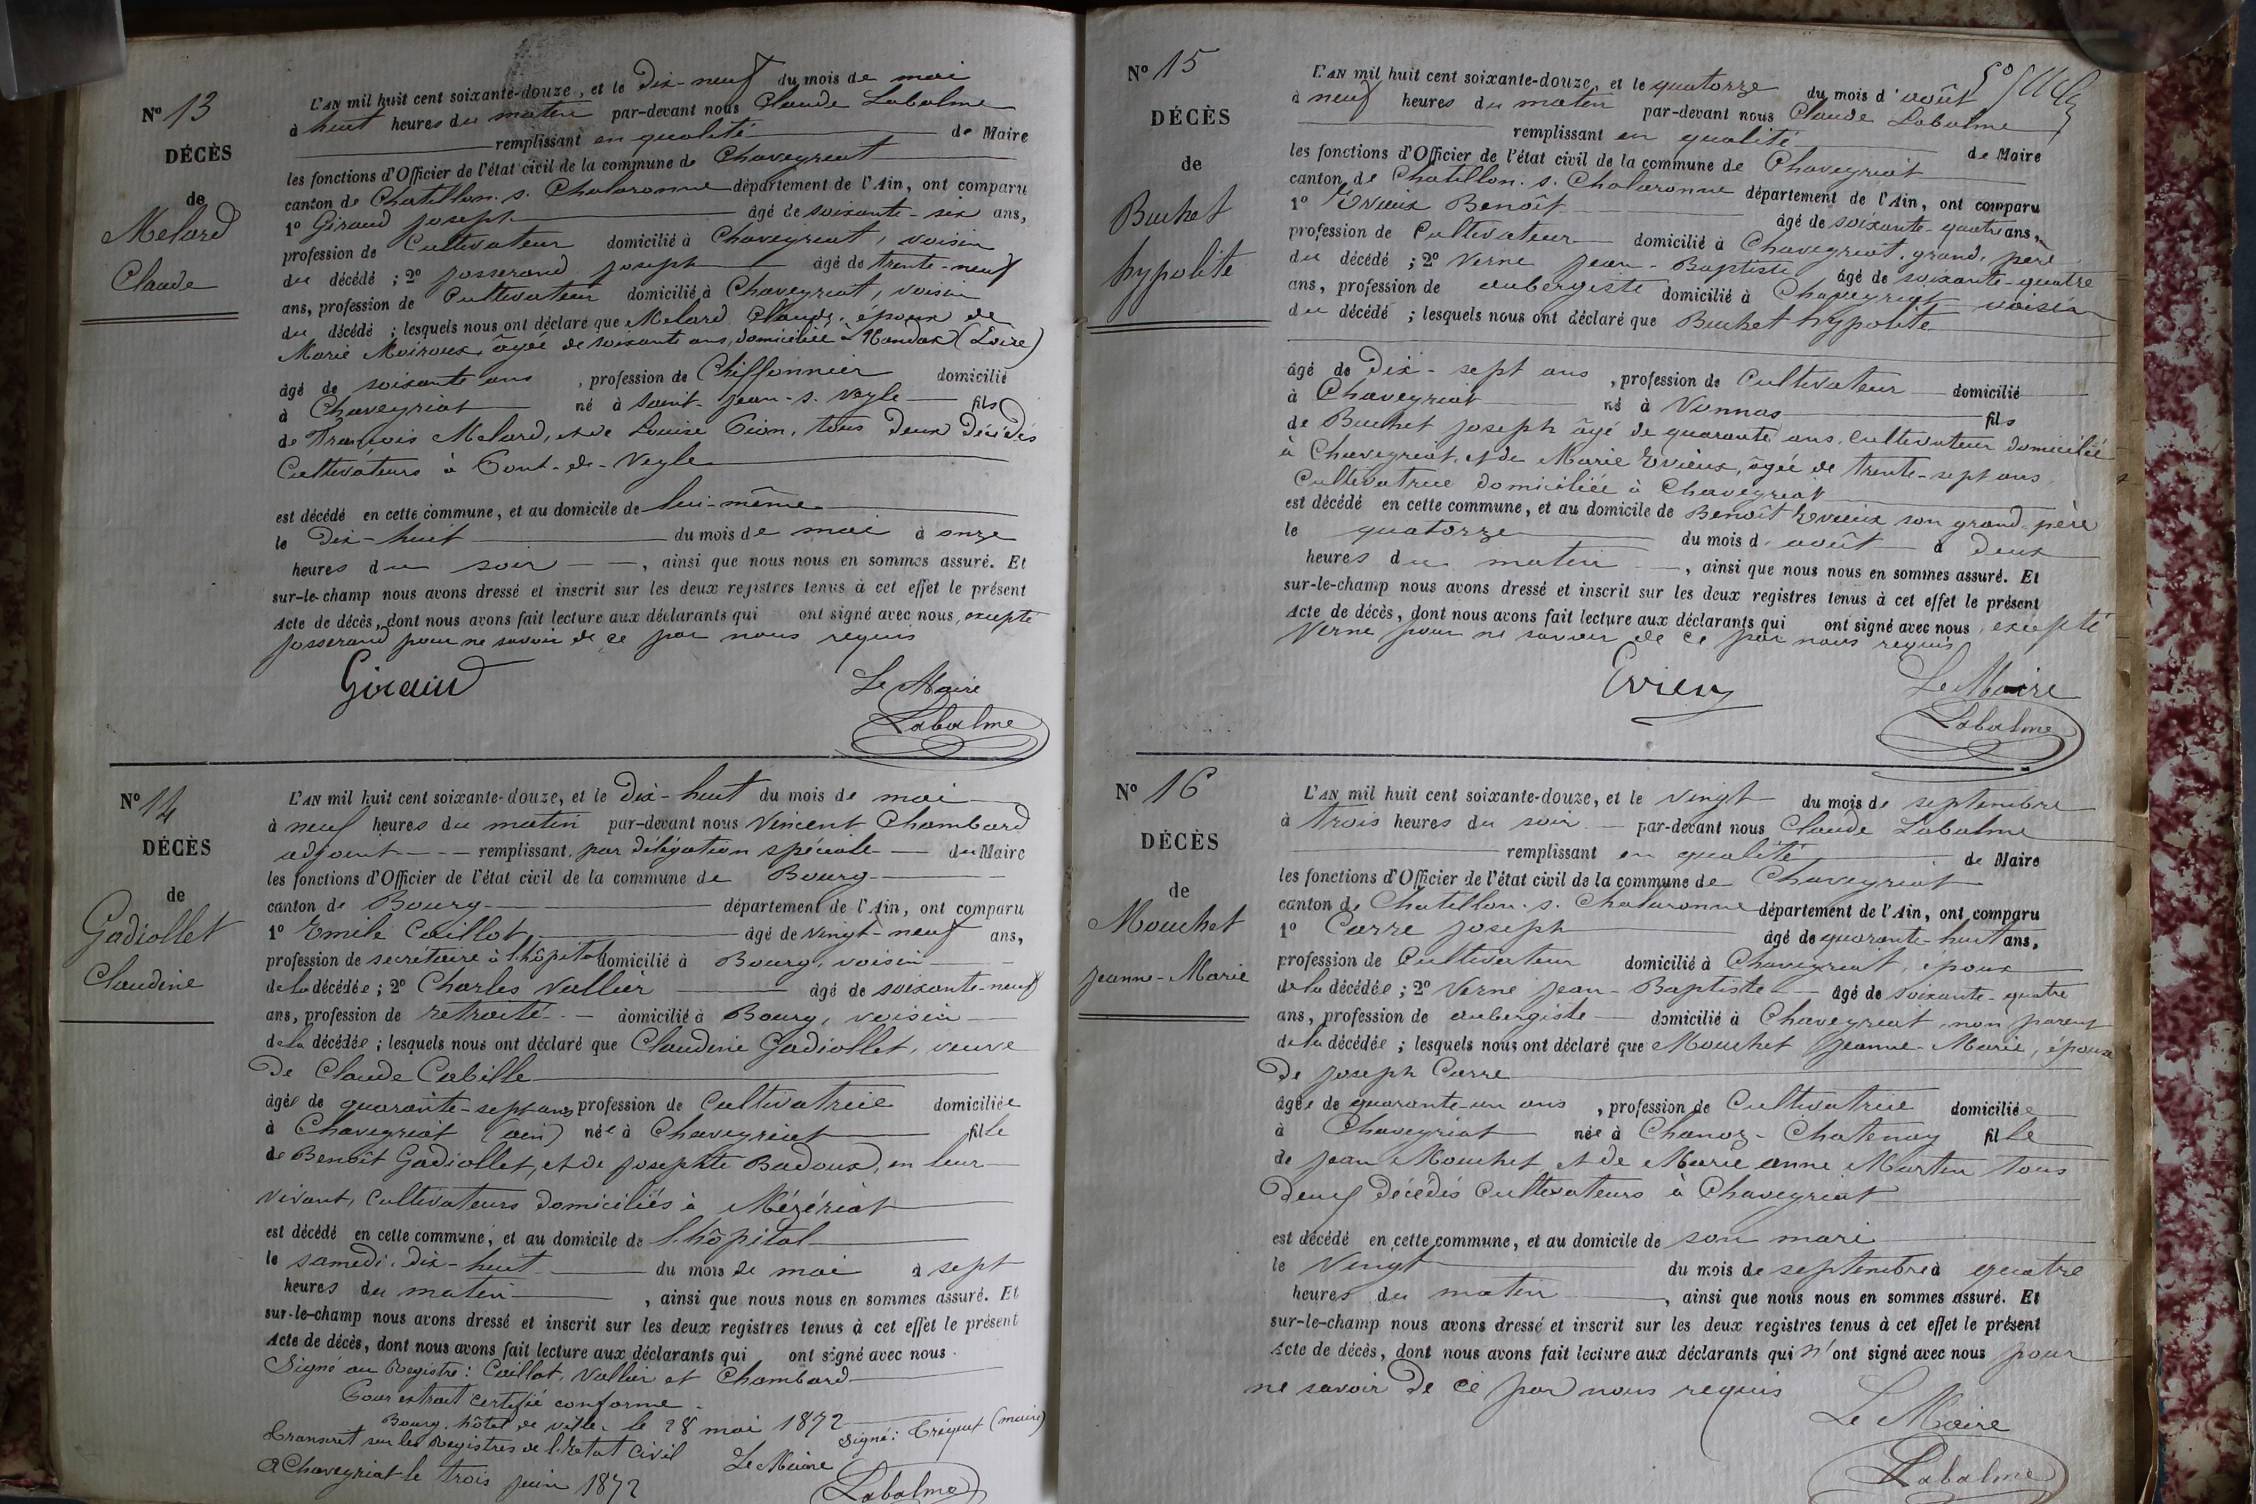 N° 13
DÉCÈS
de
Melard
Claude
L'AN mil huit cent soixante-douze, et le Dix-neuf du mois de mai
à huit heures du matin par-devant nous Claude Labalme
remplissant en qualité de Maire
les fonctions d'Officier de l'état civil de la commune de Chaveyriat
canton de Chatillon. s. Chalaronne département de l'Ain, ont comparu
1° Giraud Joseph âgé de soixante-six ans,
profession de Cultivateur domicilié à Chaveyriat, voisin
du décédé ; 2° Josserand Joseph âgé de trente-neuf
ans, profession de Cultivateur domicilié à Chaveyriat, voisin
du décédé ; lesquels nous ont déclaré que Melard Claude, époux de
Marie Moiroux, âgée de soixante ans, domiciliée à (Loire)
âgé de soixante ans, profession de Chiffonnier domicilié
à Chaveyriat né à Saint-Jean-s. Veyle fils
de François Melard, et de Louise Pion, tous deux décédés
Cultivateurs à Pont-de-Veyle
est décédé en cette commune, et au domicile de lui-même
le Dix-huit du mois de mai à onze
heures du soir, ainsi que nous nous en sommes assuré. Et
sur-le-champ nous avons dressé et inscrit sur les deux registres tenus à cet effet le présent
Acte de décès, dont nous avons fait lecture aux déclarants qui ont signé avec nous, excepté
Josserand pour ne savoir de ce par nous requis
Giraud
Le Maire
Labalme
N° 14
DÉCÈS
de
Gadiollet
Claudine
L'AN mil huit cent soixante-douze, et le Dix-huit du mois de mai
à neuf heures du matin par-devant nous Vincent Chambard
adjoint remplissant, par délégation spéciale du Maire
les fonctions d'Officier de l'état civil de la commune de Bourg
canton de Bourg département de l'Ain, ont comparu
1° Emile Caillot, âgé de vingt-neuf ans,
profession de secrétaire à l'hôpital domicilié à Bourg, voisin
de la décédée ; 2° Charles Vallier âgé de soixante-neuf
ans, profession de retraité domicilié à Bourg, voisin
de la décédée ; lesquels nous ont déclaré que Claudine Gadiollet, veuve
De Claude Cabille
âgée de quarante-sept ans profession de Cultivatrice domiciliée
à Chaveyriat (ain) née à Chaveyriat fille
de Benoît Gadiollet, et de Josephte Badoux, en leur
vivant, cultivateurs domiciliés à Mézériat
est décédé en cette commune, et au domicile de l'hôpital
le samedi, dix-huit du mois de mai à sept
heures du matin, ainsi que nous nous en sommes assuré. Et
sur-le-champ nous avons dressé et inscrit sur les deux registres tenus à cet effet le présent
Acte de décès, dont nous avons fait lecture aux déclarants qui ont signé avec nous.
Signé au Registre : Caillot, Vallier et Chambard
Pour extrait certifié conforme.
Bourg, hôtel de ville, le 28 mai 1872
Signé : (maire)
Transcrit sur les Registres de l'Etat Civil
A Chaveyriat le trois juin 1872
Le Maire
Labalme
N° 15
DÉCÈS
de
Buchet
hypolite
L'AN mil huit cent soixante-douze, et le quatorze du mois d'août
à neuf heures du matin par-devant nous Claude Labalme
remplissant en qualité de Maire
les fonctions d'Officier de l'état civil de la commune de Chaveyriat
canton de Chatillon. s. Chalaronne département de l'Ain, ont comparu
1° Evieux Benoît âgé de soixante-quatre ans,
profession de Cultivateur domicilié à Chaveyriat, grand-père
du décédé ; 2° Verne Jean-Baptiste, âgé de soixante-quatre
ans, profession de aubergiste domicilié à Chaveyriat voisin
du décédé ; lesquels nous ont déclaré que Buchet hypolite
âgé de Dix-sept ans, profession de Cultivateur domicilié
à Chaveyriat né à Vonnas fils
de Buchet Joseph âgé de quarante ans, Cultivateur domicilié
à Chaveyriat, et de Marie Evieux, âgée de trente-sept ans,
Cultivatrice domiciliée à Chaveyriat
est décédé en cette commune, et au domicile de Benoît Evieux son grand-père
le quatorze du mois d'août à deux
heures du matin, ainsi que nous nous en sommes assuré. Et
sur-le-champ nous avons dressé et inscrit sur les deux registres tenus à cet effet le présent
Acte de décès, dont nous avons fait lecture aux déclarants qui ont signé avec nous, excepté
Verne pour ne savoir de ce par nous requis
Evieux
Le Maire
Labalme
N° 16
DÉCÈS
de
Mouchet
Jeanne-Marie
L'AN mil huit cent soixante-douze, et le vingt du mois de septembre
à trois heures du soir par-devant nous Claude Labalme
remplissant en qualité de Maire
les fonctions d'Officier de l'état civil de la commune de Chaveyriat
canton de Chatillon. s. Chalaronne département de l'Ain, ont comparu
1° Carre Joseph âgé de quarante-huit ans,
profession de Cultivateur domicilié à Chaveyriat, époux
de la décédée ; 2° Verne Jean-Baptiste âgé de soixante-quatre
ans, profession de aubergiste domicilié à Chaveyriat non parent
de la décédée ; lesquels nous ont déclaré que Mouchet Jeanne-Marie, épouse
De Joseph Carre
âgée de quarante-un ans, profession de Cultivatrice domiciliée
à Chaveyriat née à Chanoz-Chatenay fille
de Jean Mouchet et de Marie anne Martin tous
Deux décédés cultivateurs à Chaveyriat
est décédé en cette commune, et au domicile de son mari
le Vingt du mois de septembre à quatre
heures du matin, ainsi que nous nous en sommes assuré. Et
sur-le-champ nous avons dressé et inscrit sur les deux registres tenus à cet effet le présent
Acte de décès, dont nous avons fait lecture aux déclarants qui n'ont signé avec nous pour
ne savoir De ce par nous requis
Le Maire
Labalme